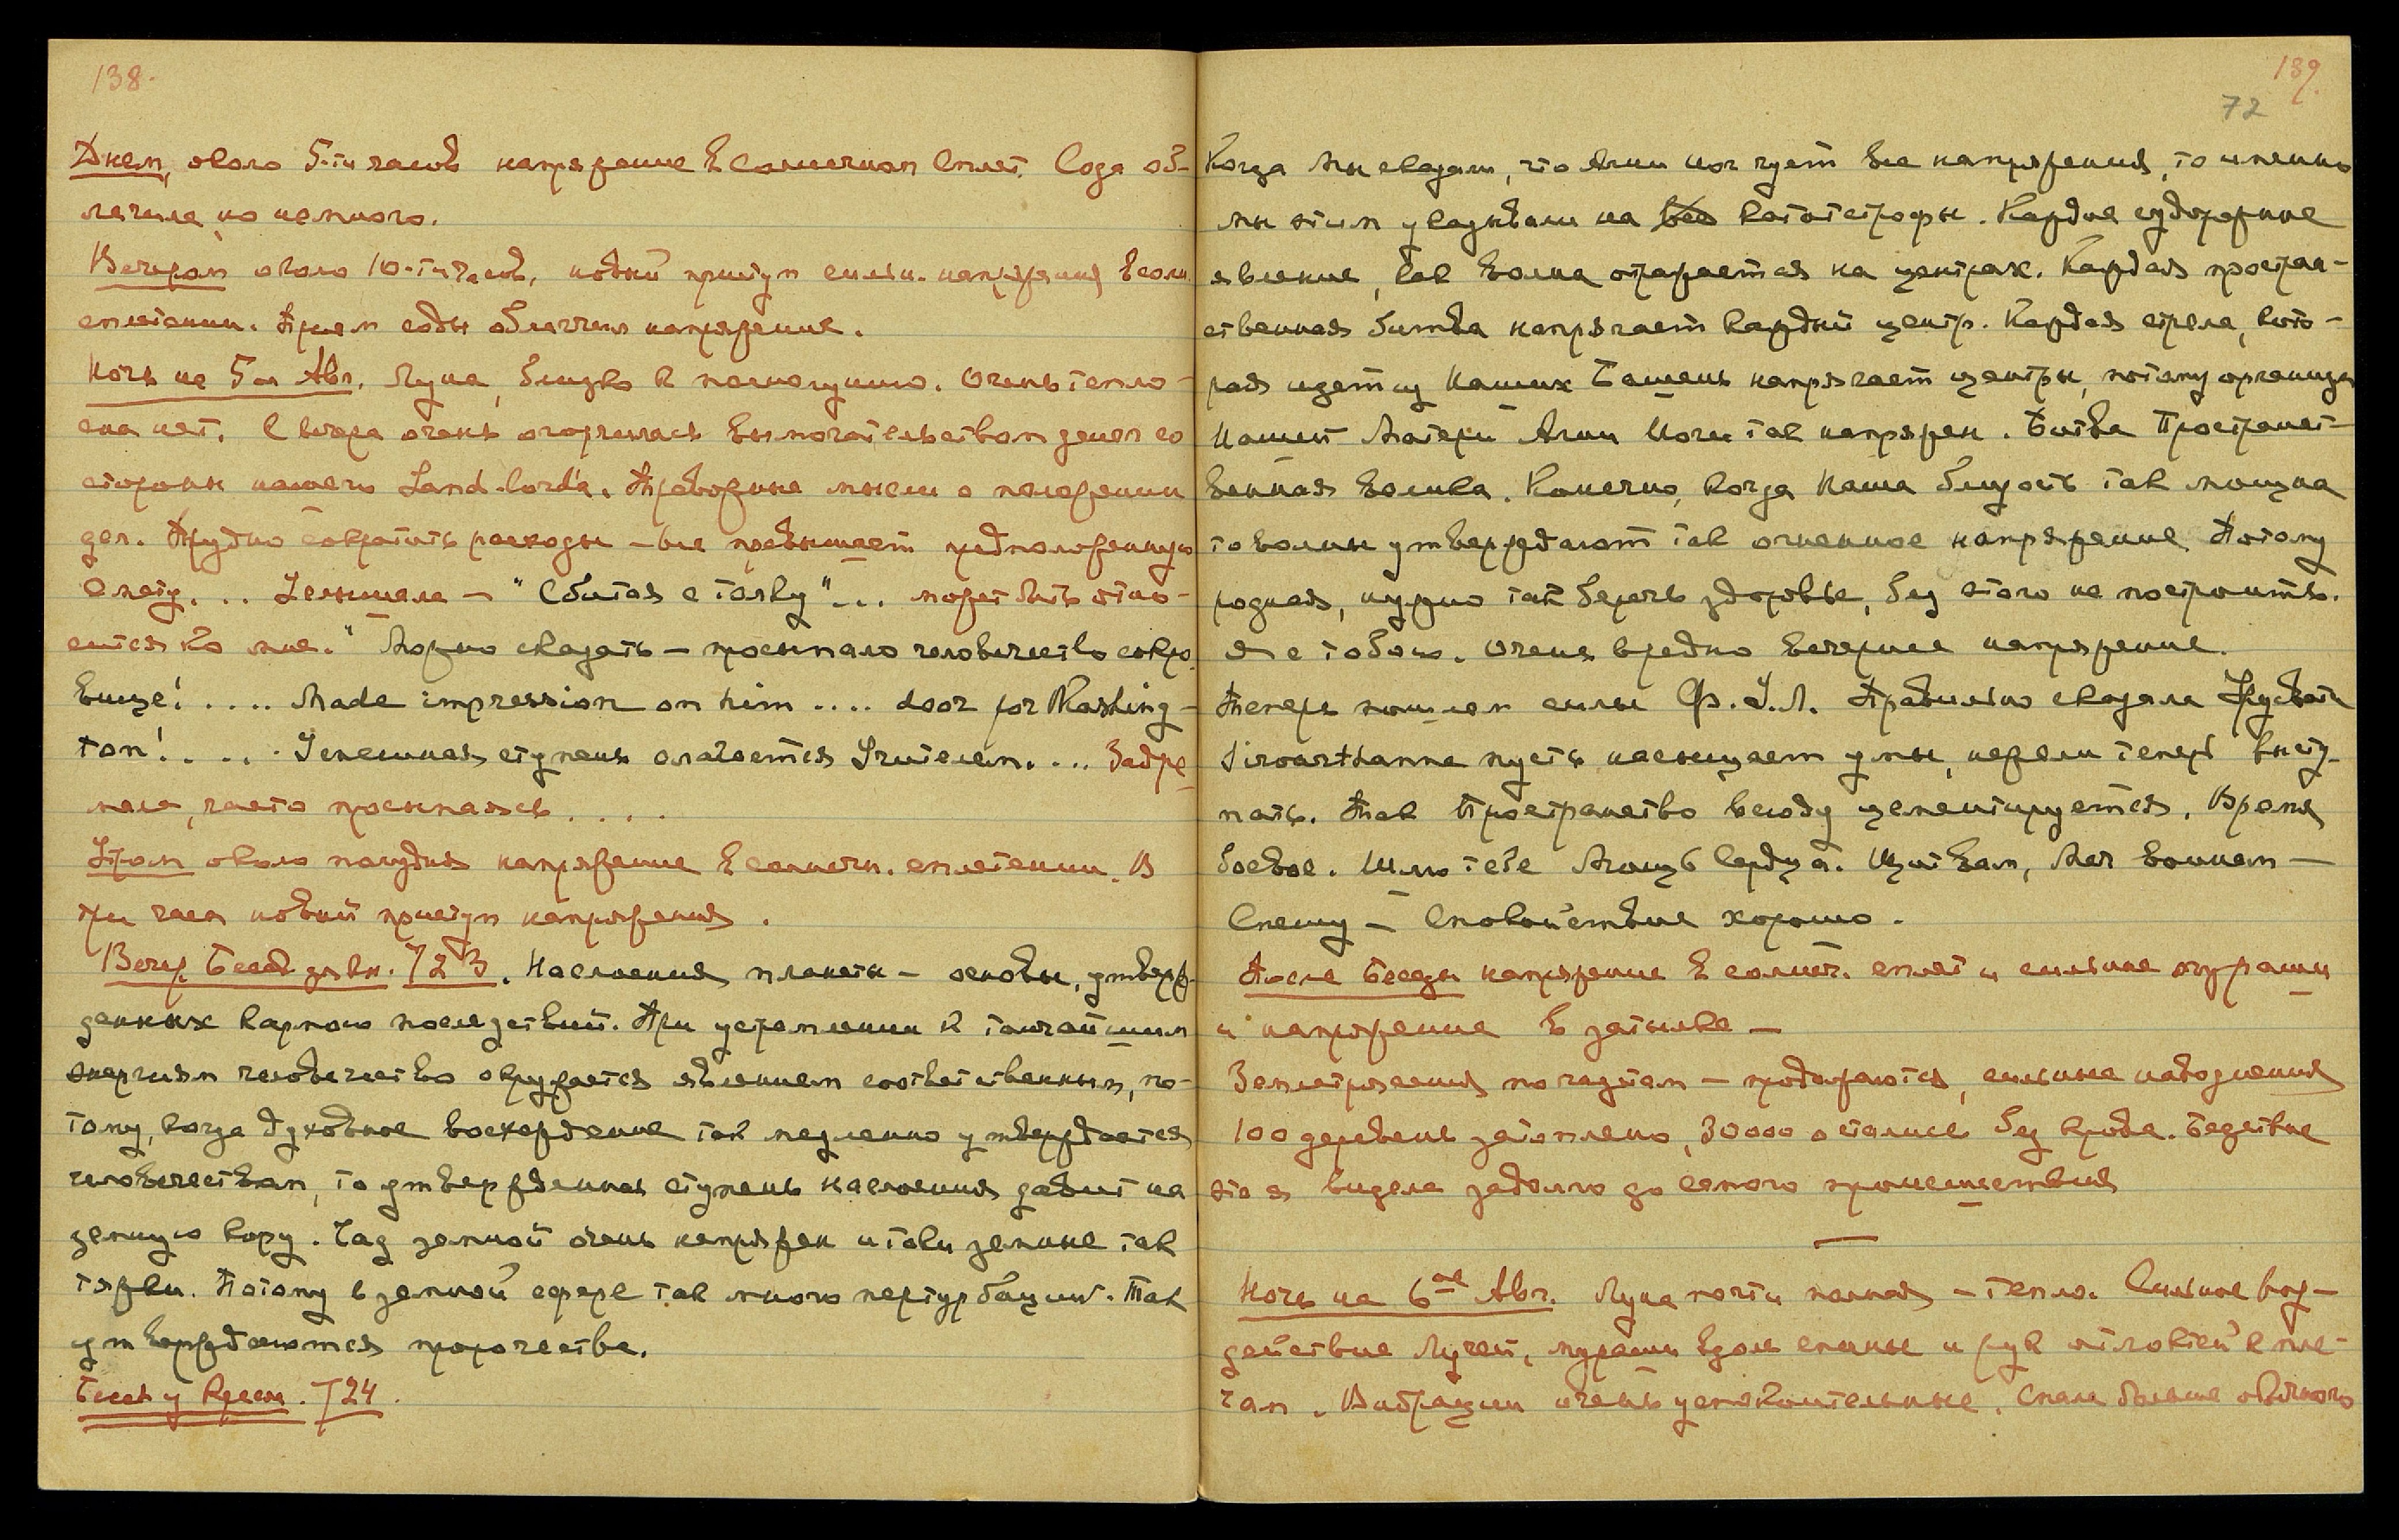 138.
Днем, около 5-ти часов напряжение в солнечном сплет. Сода об-
легчила, но немного.
Вечером около 10-ти часов, новый приступ сильн. напряжения в солн.
сплетении. Прием соды облегчил напряжение.
Ночь на 5-ое Авг. Луна, близко к полнолунию. Очень тепло —
сна нет. С вечера очень огорчилась вымогательством денег со
стороны нашего Land-lord'а. Тревожные мысли о положении
дел. Трудно сократить расходы — все превышает предположенную
смету. .. Услышала — "Сбитая с толку"... может быть отно-
сится ко мне." Можно сказать — просыпало человечество сокро-
вище! .... Made impression on him .... door for Washing-
ton! .... Успешная ступень слагается Учителем. ... Задре-
мала, часто просыпаясь ....
Утром около полудня напряжение в солнечн. сплетении. В
три часа новый приступ напряжения.
Вечер. Бесед. зп. кн. 723. Наслоения планеты — основы, утверж-
денных кармою последствий. При устремлении к тончайшим
энергиям человечество окружается явлением соответственным, по-
тому, когда духовное восхождение так медленно утверждается
человечеством, то утвержденная ступень наслоения давит на
земную кору. Чад земной очень напряжен и токи земные так
тяжки. Потому в земной сфере так много пертурбаций. Так
утверждаются пророчества.
724.
139.
72
Когда Мы сказали, что Агни Йог чует все напряжения, то именно
мы этим указывали на все катастрофы. Каждое судорожное
явление, как волна отражается на центрах. Каждая простран-
ственная битва напрягает каждый центр. Каждая стрела, кото-
рая идет из Наших Башень напрягает центры, потому организм
Нашей Матери Агни Йоги так напряжен. Битва Пространст-
венная велика. Конечно, когда Наша близость так мощна
то волны утверждают так огненное напряжение. Потому
родная, нужно так беречь здоровье, без этого не построить.
Я с тобою. Очень вредно вечернее напряжение.
Теперь пошлем силы Ф.У.Л. Правильно сказала
пусть насыщает умы, нежели теперь высту-
пать. Так Пространство всюду цементируется. Время
боевое. Шлю тебе Мощь Сердца. Щит вам, Меч воинам —
Спешу — Спокойствие хорошо.
После Беседы напряжение в солнеч. сплет и сильные мурашки
и напряжение в затылке —
Землетрясения по газетам — продолжаются, сильные наводнения
100 деревень затоплено, 30000 остались без крова. Бедствие
это я видела задолго до самого происшествия
—
Ночь на 6-ое Авг. Луна почти полная — тепло. Сильное воз-
действие Лучей, мурашки вдоль спины и рук от локтей к пле-
чам. Вибрации очень успокоительные. Спала больше обычного